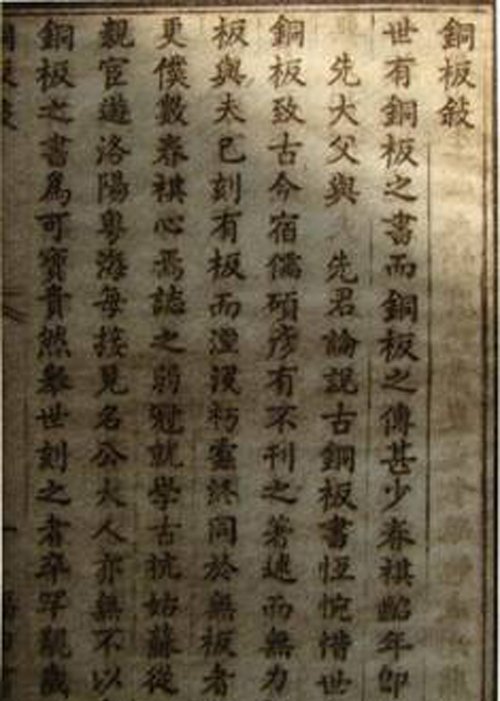 銅板敍
世有銅板之書而銅板之傳甚少春祺齠年卽
先大父與 先君論説古銅板書恆惋惜世
銅板致古今宿儒碩彦有不刊之著述而無力
板與夫已刻有板而湮没朽蠹終同於無板者
更僕數春祺心焉誌之弱冠就學古杭姑蘇從
親宦遊洛陽粤海每接見名公大人亦無不以
銅板之書爲可寶貴然舉世刻之者卒罕覯歲